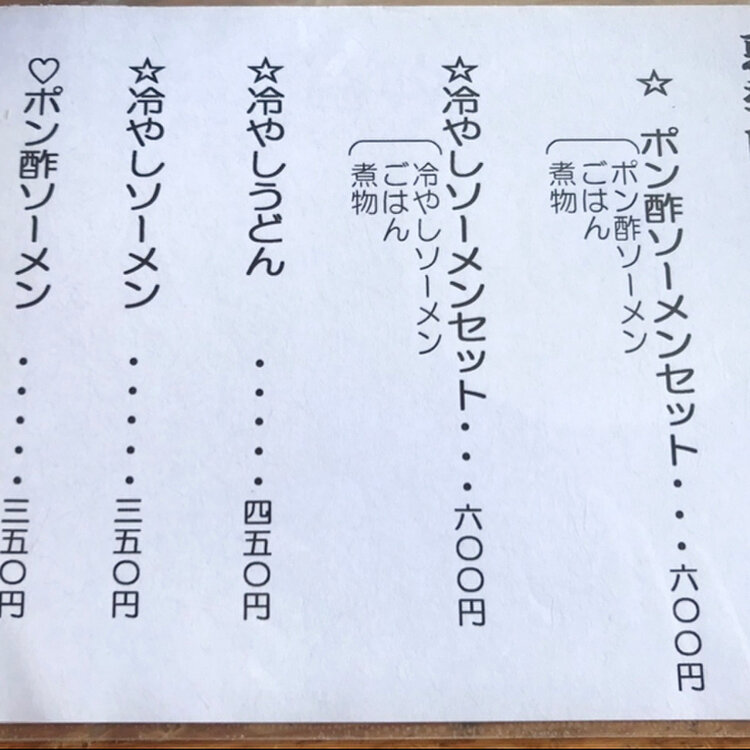 ☆ ポン酢ソーメンセット・・・六〇〇円
ポン酢ソーメン
ごはん
煮物
☆冷やしソーメンセット・・・六〇〇円
冷やしソーメン
ごはん
煮物
☆冷やしうどん ・・・・・四五〇円
☆冷やしソーメン ・・・・・三五〇円
♡ポン酢ソーメン ・・・・・三五〇円